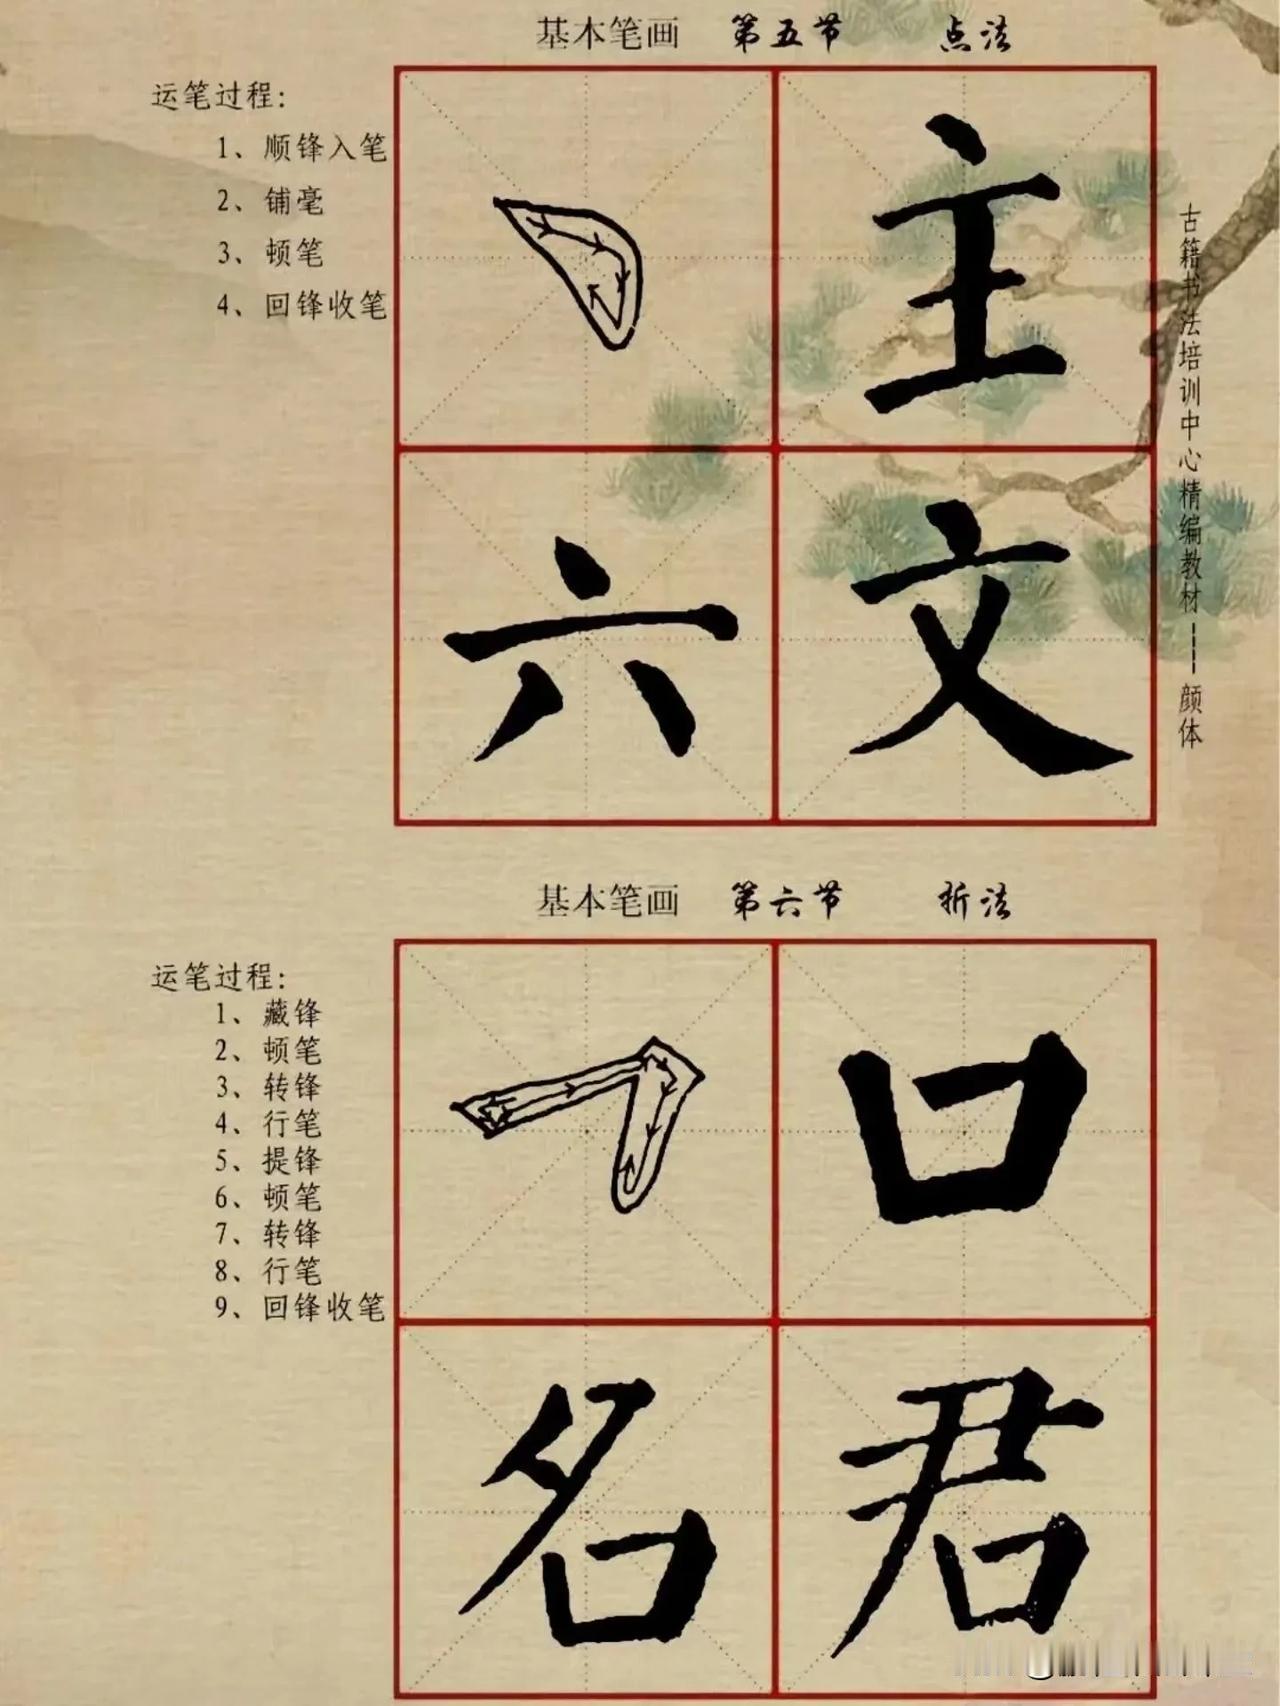 基本笔画 第五节 点法
运笔过程：
1、顺锋入笔
2、铺毫
3、顿笔
4、回锋收笔
主
六 文
古籍书法培训中心精编教材---颜体
基本笔画 第六节 折法
运笔过程：
1、藏锋
2、顿笔
3、转锋
4、行笔
5、提锋
6、顿笔
7、转锋
8、行笔
9、回锋收笔
口
名 君